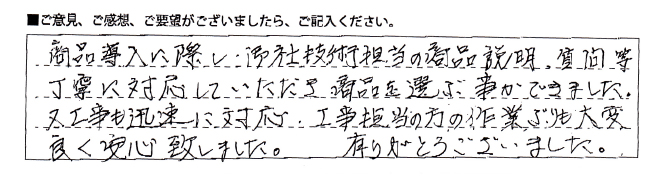 ■ご意見、ご感想、ご要望がございましたら、ご記入ください。
商品導入に際し、御社技術担当の商品説明、質問等
丁寧に対応していただき商品を選ぶ事ができました。
又工事も迅速に対応、工事担当の方の作業ぶりも大変
良く安心致しました。 有りがとうございました。